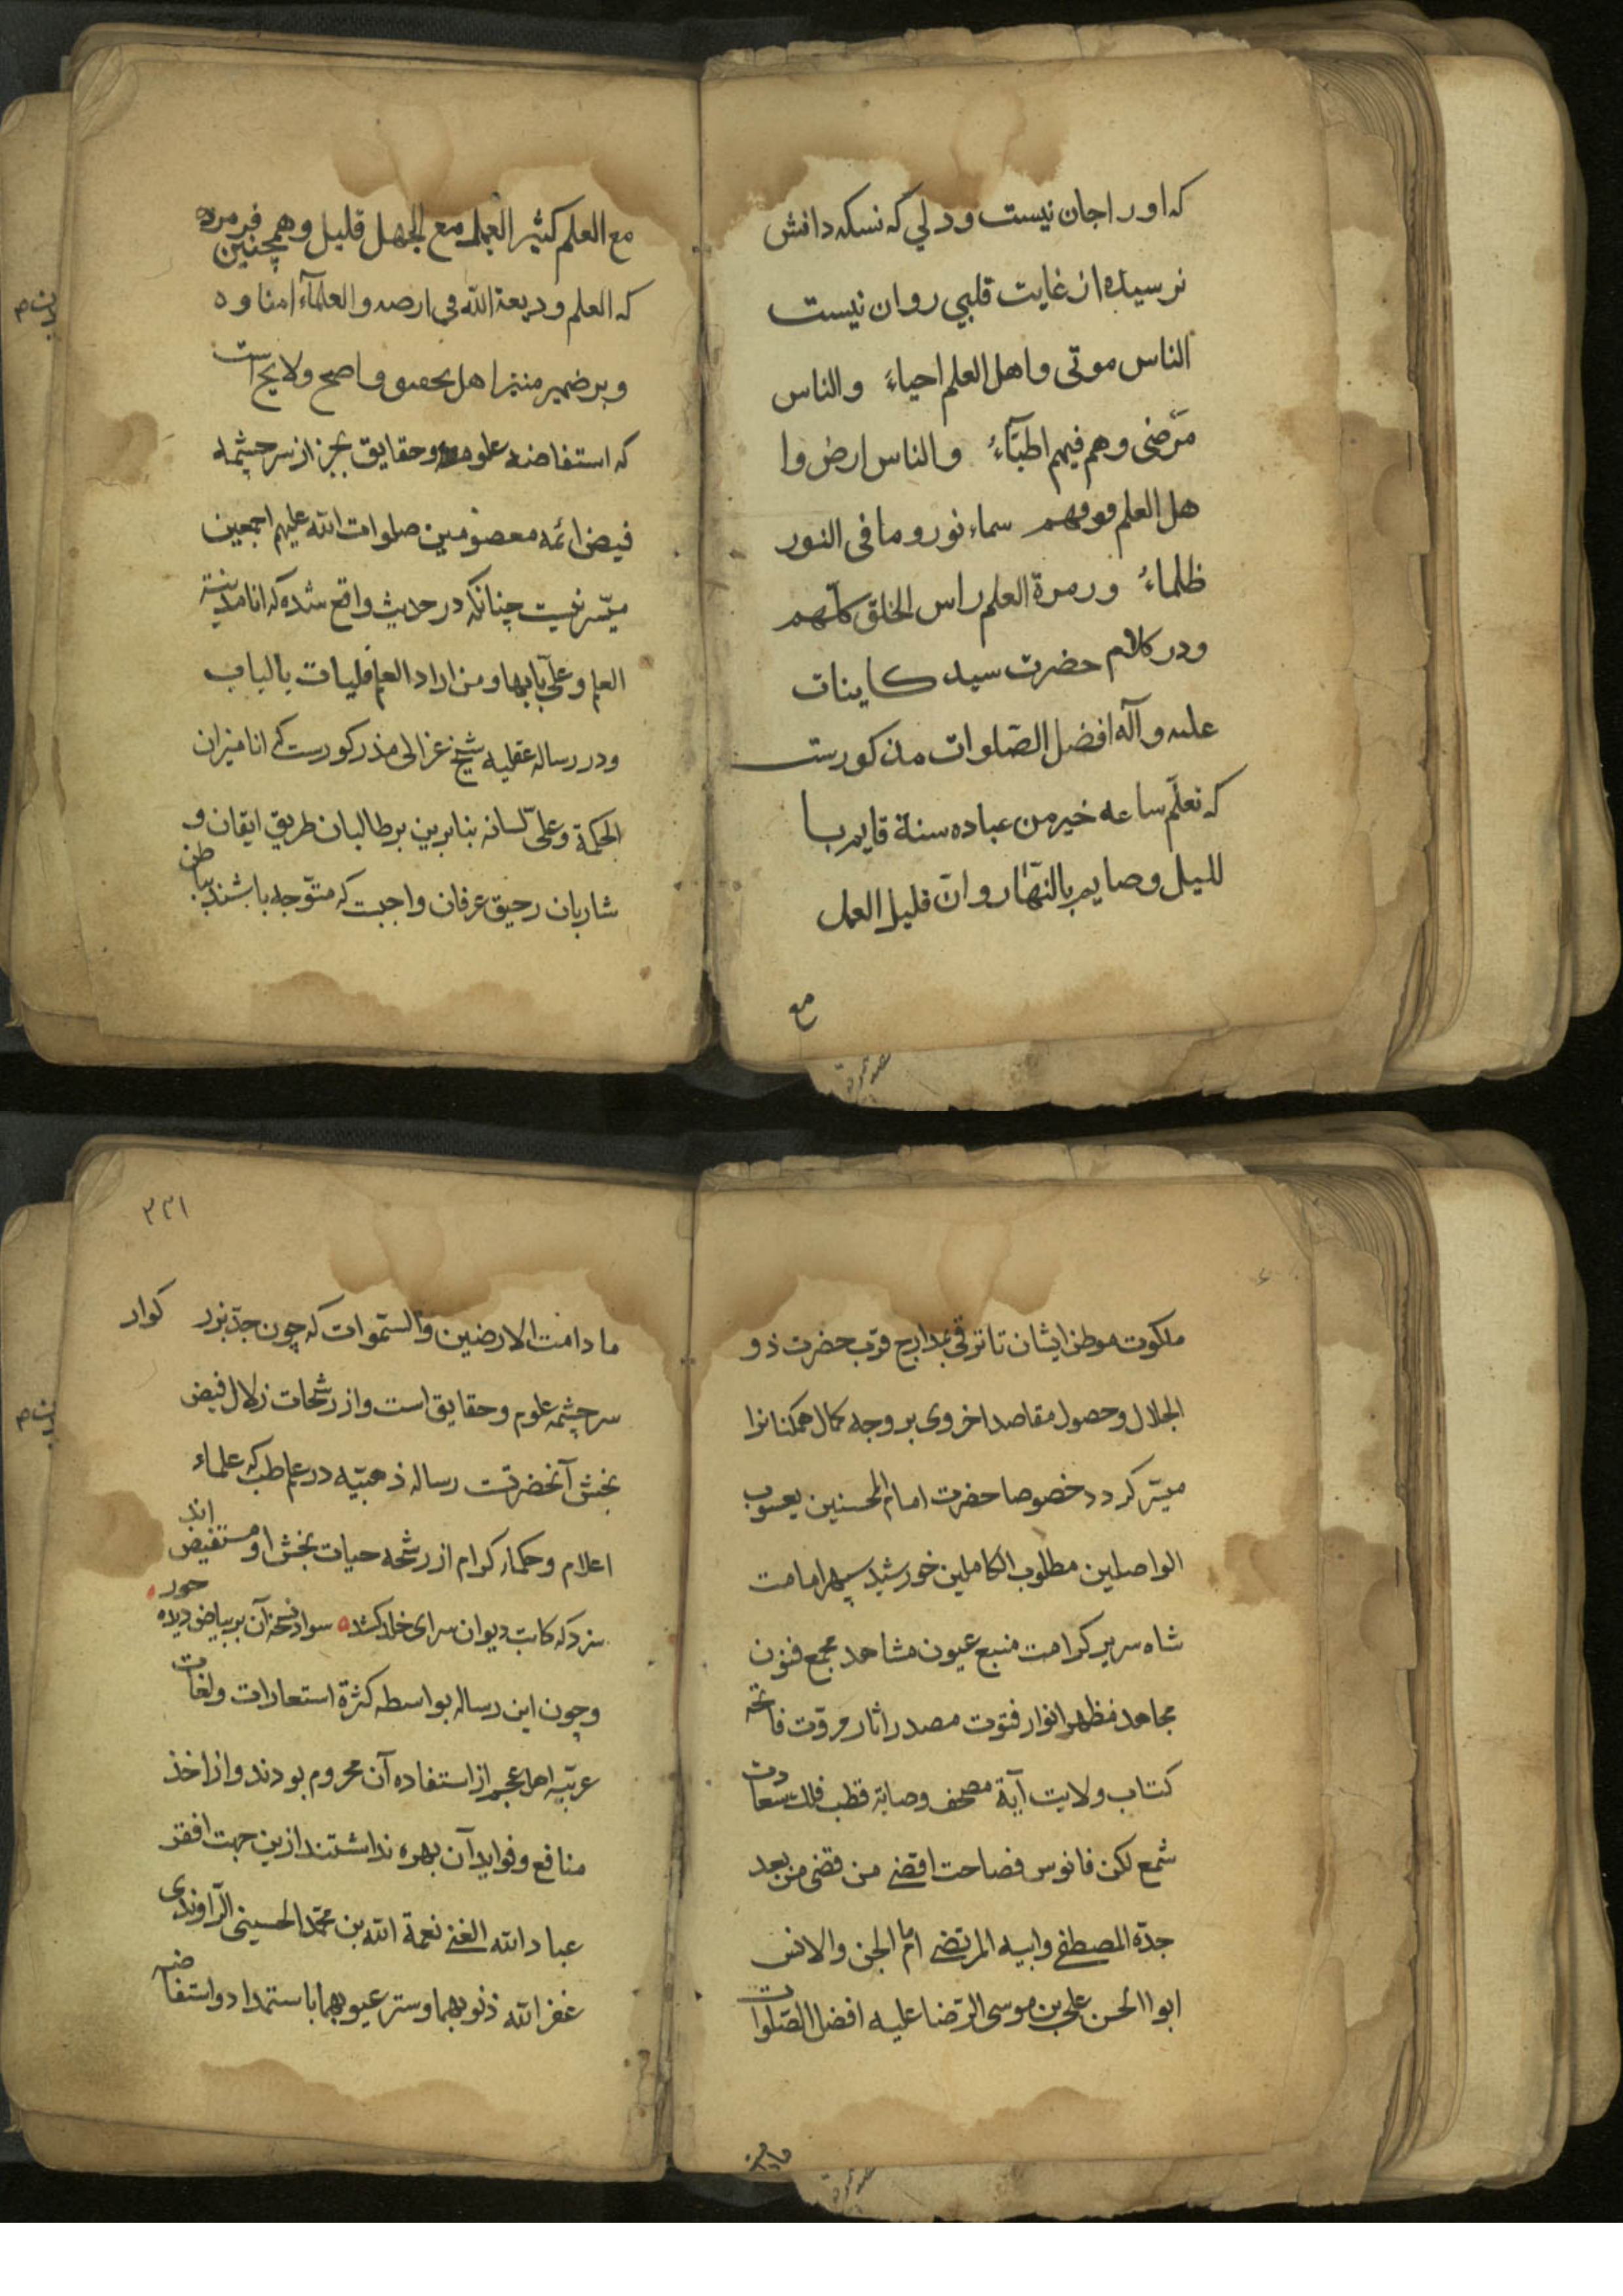 که اورا جان نیست ودلي که نسکه دانش
نرسیده از غایت قلبي روان نیست
الناس موتی واهل العلم احیاءُ والناس
مَرّضی وهم فیهم اطبّآءُ والناس ارض وا
هل العلم فوقهم سماء نور وما فی النور
ظلماءُ وزمرة العلم راس الخلق کلّهم
ودر کلام حضرت سید کاینات
علیه وآله افضل الصّلوات مذکورست
که تعلّم ساعه خیر من عباده سنة قایم با
للیل وصایم بالنهّار وانّ قلیل العمل
مع
مع العلم کثیر العمل مع الجهل قلیل وهمچنین فرمرده
که العلم ودیعة الله في ارضه والعلمآء امناوه
وبر ضمیر منیر اهل تحقیق واضح ولایح است
که استفاضه علوم وحقایق بجز از سرچشمه
فیض ائمه معصومین صلوات الله علیهم اجمعین
میّسر نیست چنانکه در حدیث واقع شده که انا مدینة
العلم وعليّ بابها ومن اراد العلم فلیات بالباب
ودر رساله عقلیه شیخ غزالی مذکورست که انا میزان
الحکمة وعلیّ لسانه بنابرین بر طالبان طریق ایقان و
شاربان رحیق عرفان واجبست که متوّجه باشند بباطن
ملکوت موطن ایشان تا ترقی بمدارج قرب حضرت ذو
الجلال وحصول مقاصد اخروی بر وجه کمال همکنانرا
میسّر کردد خصوصا حضرت امام المحسنین یعسوب
الواصلین مطلوب الکاملین خورشید سپهر امامت
شاه سریر کرامت منبع عیون مشاهد مجمع فنون
مجاهد مظهر انوار فتوت مصدر اثار مروّت فاتحه
کتاب ولایت آیة مصحف وصایة قطب فلک سعادت
شمع لکن فانوس فصاحت اقضی من قضی من بعد
جدّه المصطفی وابیه المرتضی امام الجن والانس
ابوا الحسن علي بن موسی الرّضا علیه افضل الصّلوات
مادامت
۲۳۱
ما دامت الارضین والسّموات که چون جدّ بزر کوار
سرچشمه علوم وحقایق است واز رشحات زلال فیض
بخش آنحضرتست رساله ذهبیّه در علم طب که علماء
اعلام وحکماء کرام از رشحه حیات بخش او مستفیض اند
سزد که کاتب دیوان سرای خلد کشد سواد نسخهٔ آن بر بیاض دیده حور
وچون این رساله بواسطه کثرة استعارات ولغات
عربّیه اهل عجم از استفاده آن محروم بودند واز اخذ
منافع وفواید آن بهره نداشتند ازین جهت افقر
عباد الله الغنی نعمة الله بن محمّد الحسینی الرّاوندی
غفر الله ذنوبهما وستر عیوبهما باستمداد واستفاضه